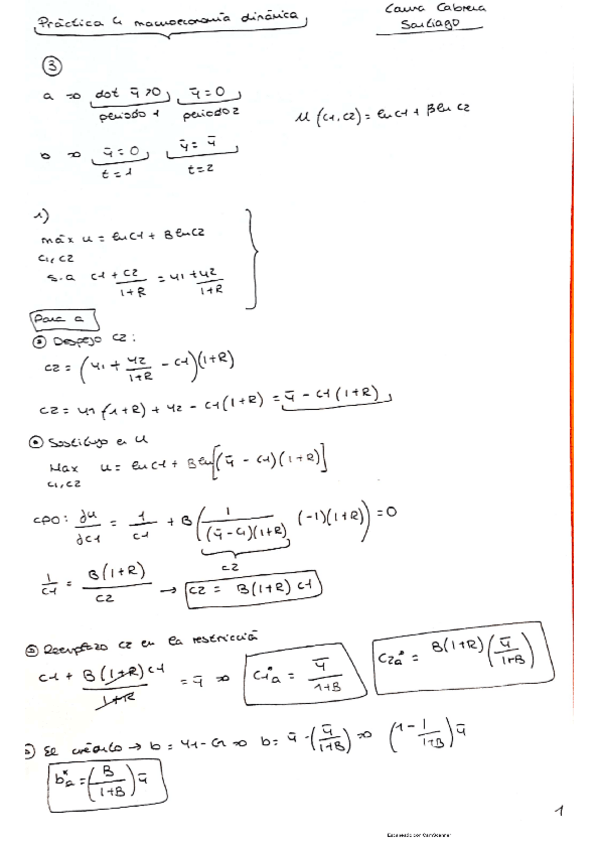 Práctica 4 macroeconomía dinámica
Laura Cabrera
Santiago
③
a ⇒ dot ȳ>0, ȳ=0
periodo 1 periodo 2
u(c1,c2) = ln c1 + β ln c2
b ⇒ ȳ=0, ȳ=ȳ
t=1 t=2
1)
máx u = ln c1 + B ln c2
c1, c2
s.a c1 + c2/(1+R) = y1 + y2/(1+R)
Para a
Despejo c2:
c2 = (y1 + y2/(1+R) - c1)(1+R)
c2 = y1(1+R) + y2 - c1(1+R) = ȳ - c1(1+R)
Sustituyo en u
Max u = ln c1 + B ln[(ȳ - c1)(1+R)]
c1, c2
CPO: ∂u/∂c1 = 1/c1 + B(1/((ȳ-c1)(1+R)) (-1)(1+R)) = 0
c2
1/c1 = B(1+R)/c2 → c2 = B(1+R) c1
Reemplazo c2 en la restricción
c1 + B(1+R)c1/(1+R) = ȳ ⇒ c1a* = ȳ/(1+B) c2a* = B(1+R)(ȳ/(1+B))
El crédito → b = y1 - c1 ⇒ b = ȳ - (ȳ/(1+B)) ⇒ (1 - 1/(1+B)) ȳ
ba* = (B/(1+B)) ȳ
1
Escaneado con CamScanner